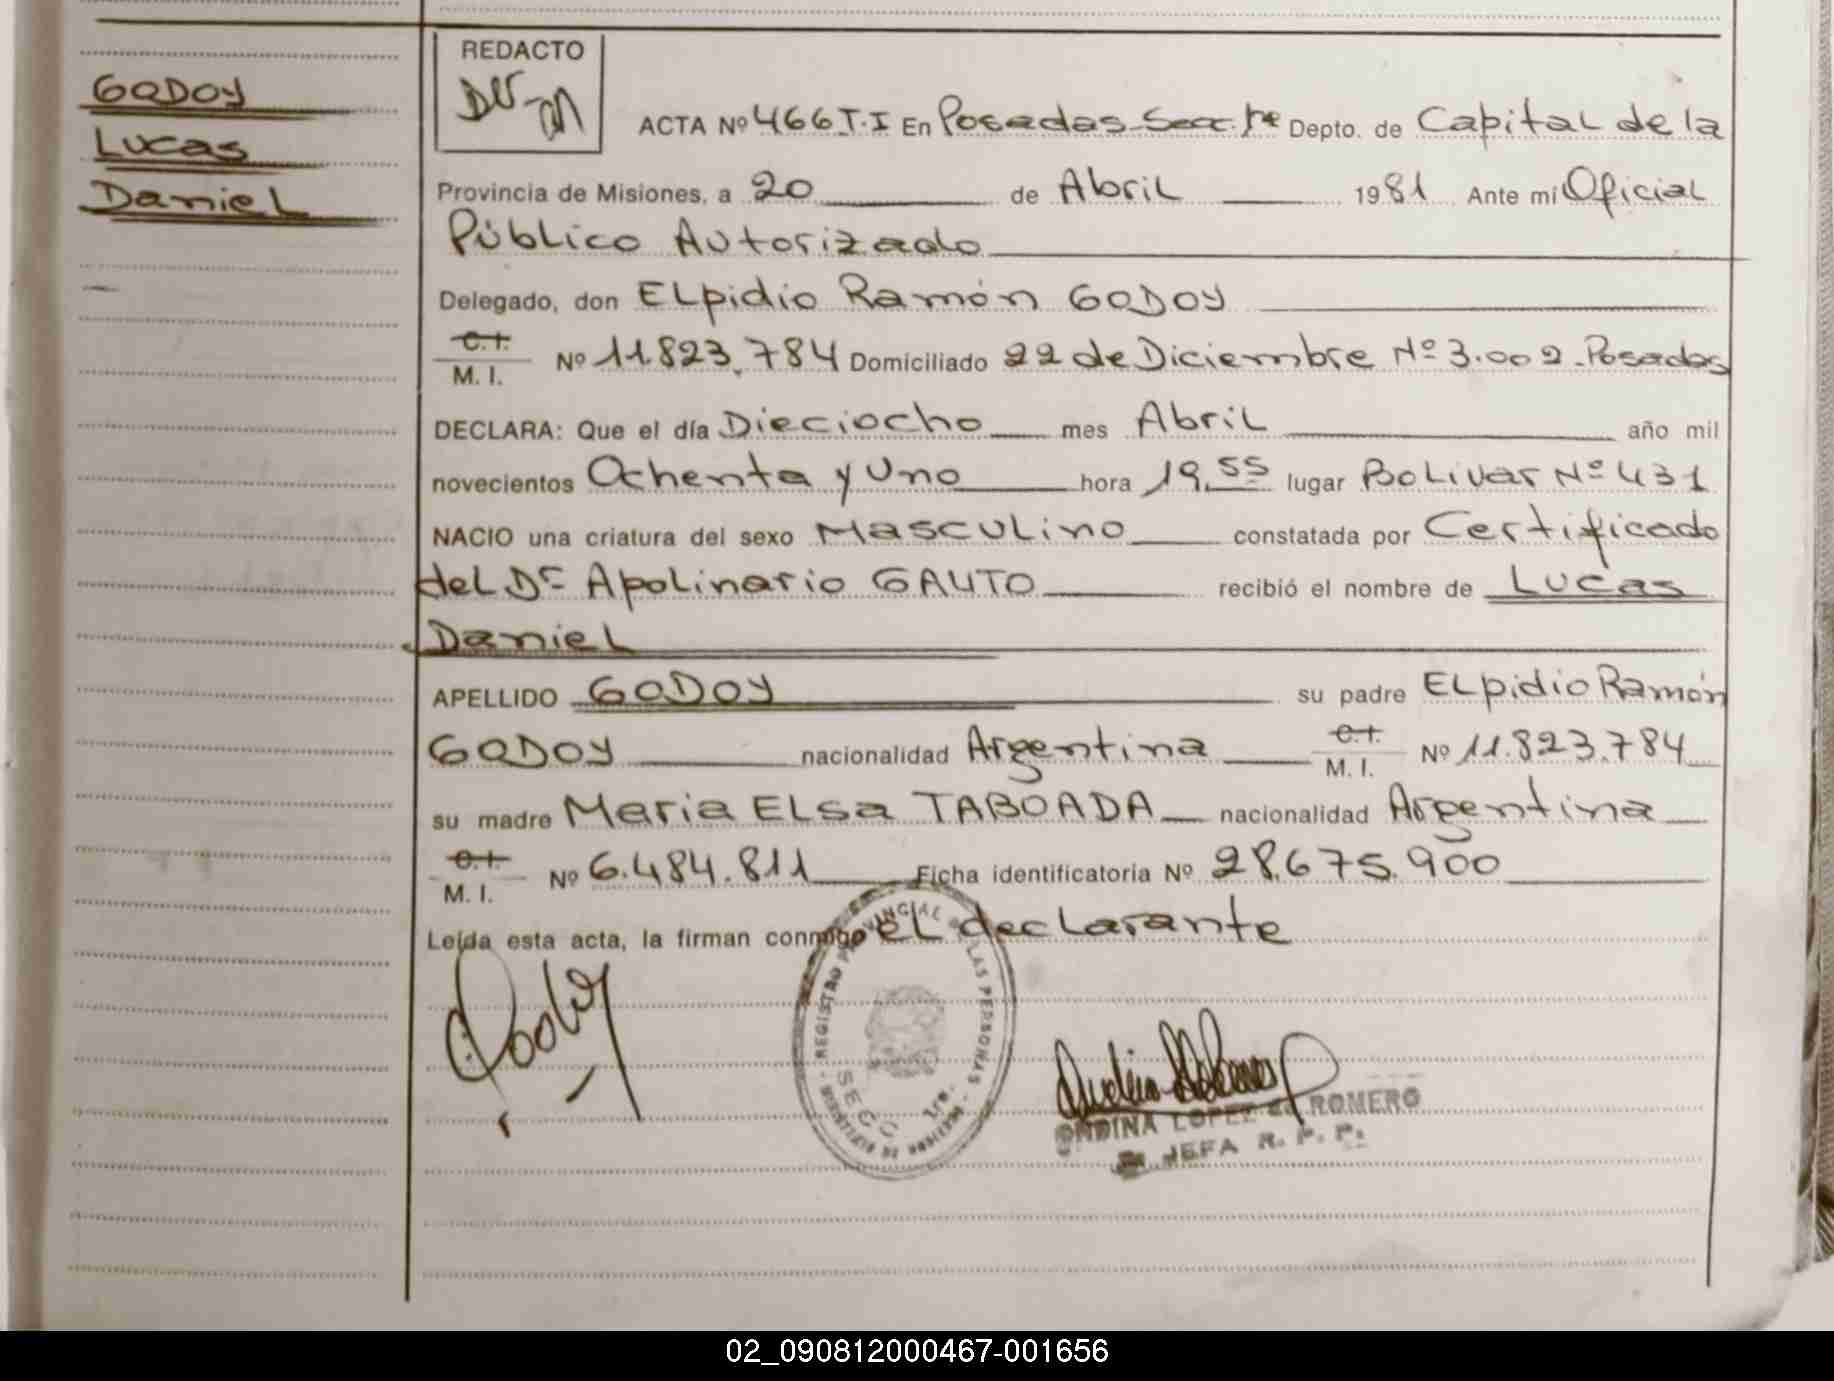 GODOY
Lucas
Daniel
REDACTO
ACTA Nº 466 T.I En Posadas Secc. 1ra Depto. de Capital de la
Provincia de Misiones, a 20 de Abril 1981 Ante mí Oficial
Público Autorizado
Delegado, don Elpidio Ramón GODOY
C.I.
M. I. Nº 11.823.784 Domiciliado 22 de Diciembre Nº 3.002-Posadas
DECLARA: Que el día Dieciocho mes Abril año mil
novecientos Ochenta y Uno hora 19,55 lugar Bolivar Nº 431
NACIO una criatura del sexo Masculino constatada por Certificado
del Dr Apolinario GAUTO recibió el nombre de Lucas
Daniel
APELLIDO GODOY su padre Elpidio Ramón
GODOY nacionalidad Argentina C.I. M. I. Nº 11.823.784
su madre Maria Elsa TABOADA nacionalidad Argentina
C.I.
M. I. Nº 6.484.811 Ficha identificatoria Nº 28.675.900
Leída esta acta, la firman conmigo el declarante
REGISTRO PROVINCIAL DE LAS PERSONAS
SECC. 1ra.
MINISTERIO DE GOBIERNO
ONDINA LOPEZ de ROMERO
JEFA R. P. P.
02_090812000467-001656